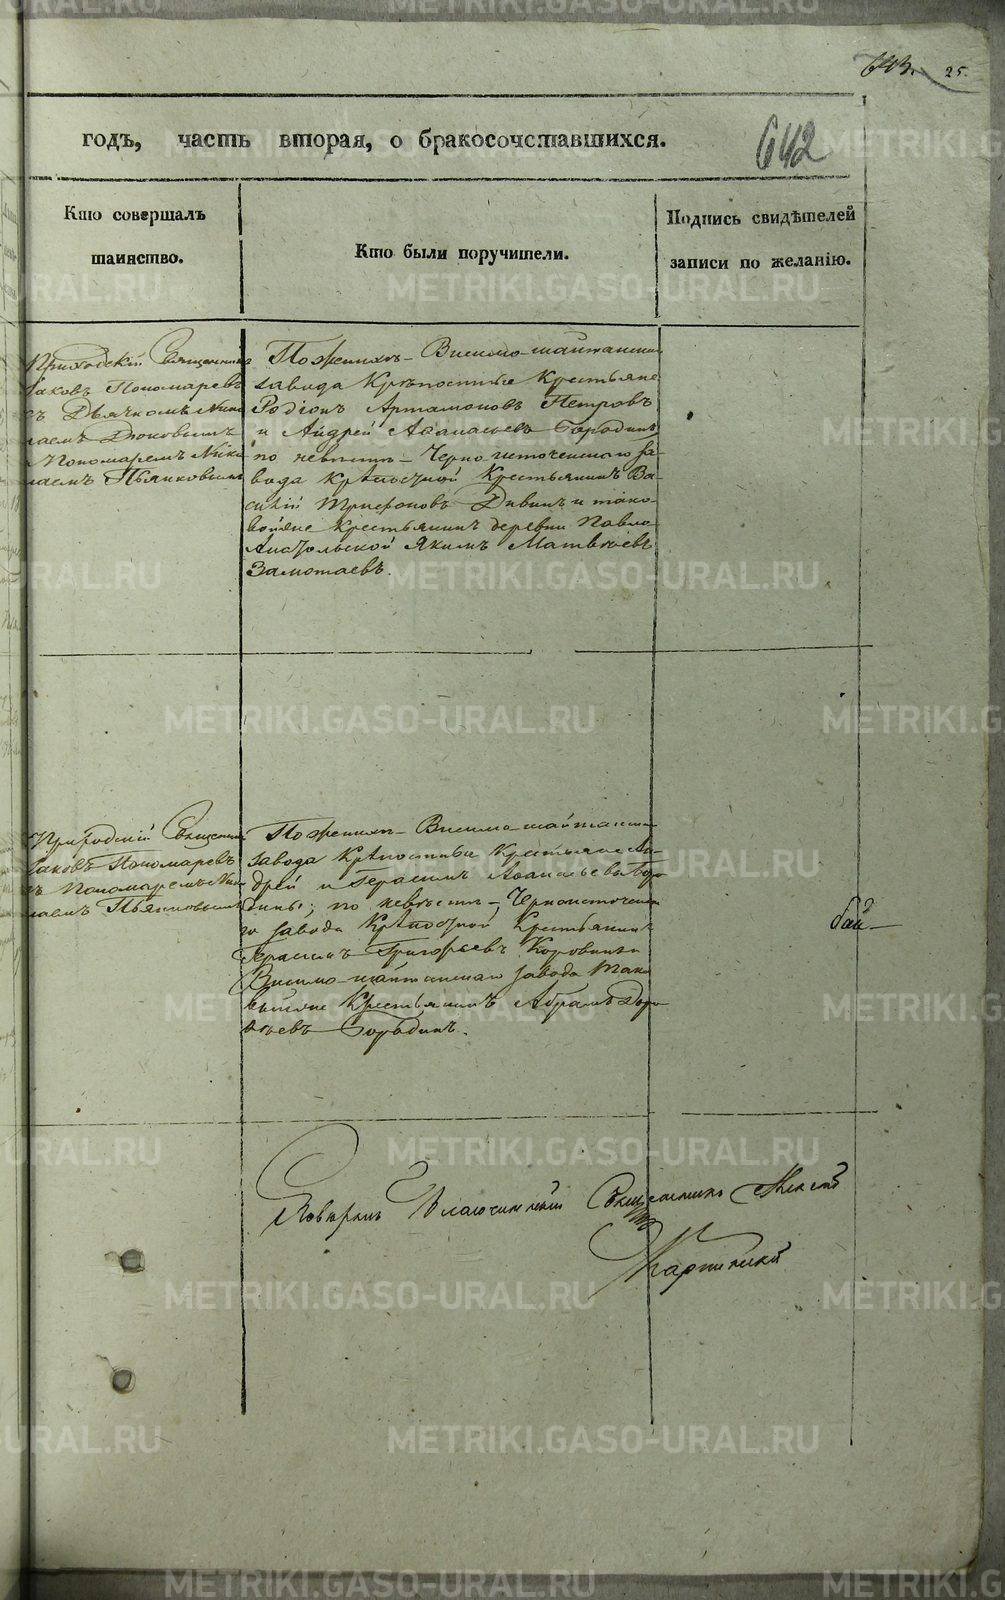 643. 25.
годъ, часть вторая, о бракосочетавшихся.
642
Кто совершалъ
таинство.
Кто были поручители.
Подпись свидѣтелей
записи по желанію.
Приходскій Священникъ
Іаковъ Пономаревъ
съ Дьячкомъ Нико
лаемъ
Пономаремъ Нико
лаемъ Пьянковымъ
По женихѣ – Висимо-шайтанскаго
завода Крѣпостные Крестьяне
Родіонъ Артамоновъ Петровъ
и Андрей Аѳанасьевъ Бородинъ
по невѣстѣ – Черноисточенскаго за-
вода крѣпостной Крестьянинъ Ва-
силій Трифоновъ Дивинъ и тако-
войже Крестьянинъ деревни Павло-
Анатольской Якимъ Матвѣевъ
Замотаевъ.
Приходскій Священникъ
Іаковъ Пономаревъ
съ Пономаремъ Нико
лаемъ Пьянковымъ
По женихѣ – Висимо-шайтанскаго
завода Крѣпостные Крестьяне Ан-
дрей и Герасимъ Аѳанасьевы Боро-
дины; по невѣстѣ –, Черноисточенска-
го завода Крѣпостной Крестьянинъ
Герасимъ Григорьевъ Коровинъ и
Висимо-шайтанскаго завода тако-
выйже Крестьянинъ Абрамъ Доро-
ѳеевъ Бородинъ.
Священникъ
METRIKI.GASO-URAL.RU